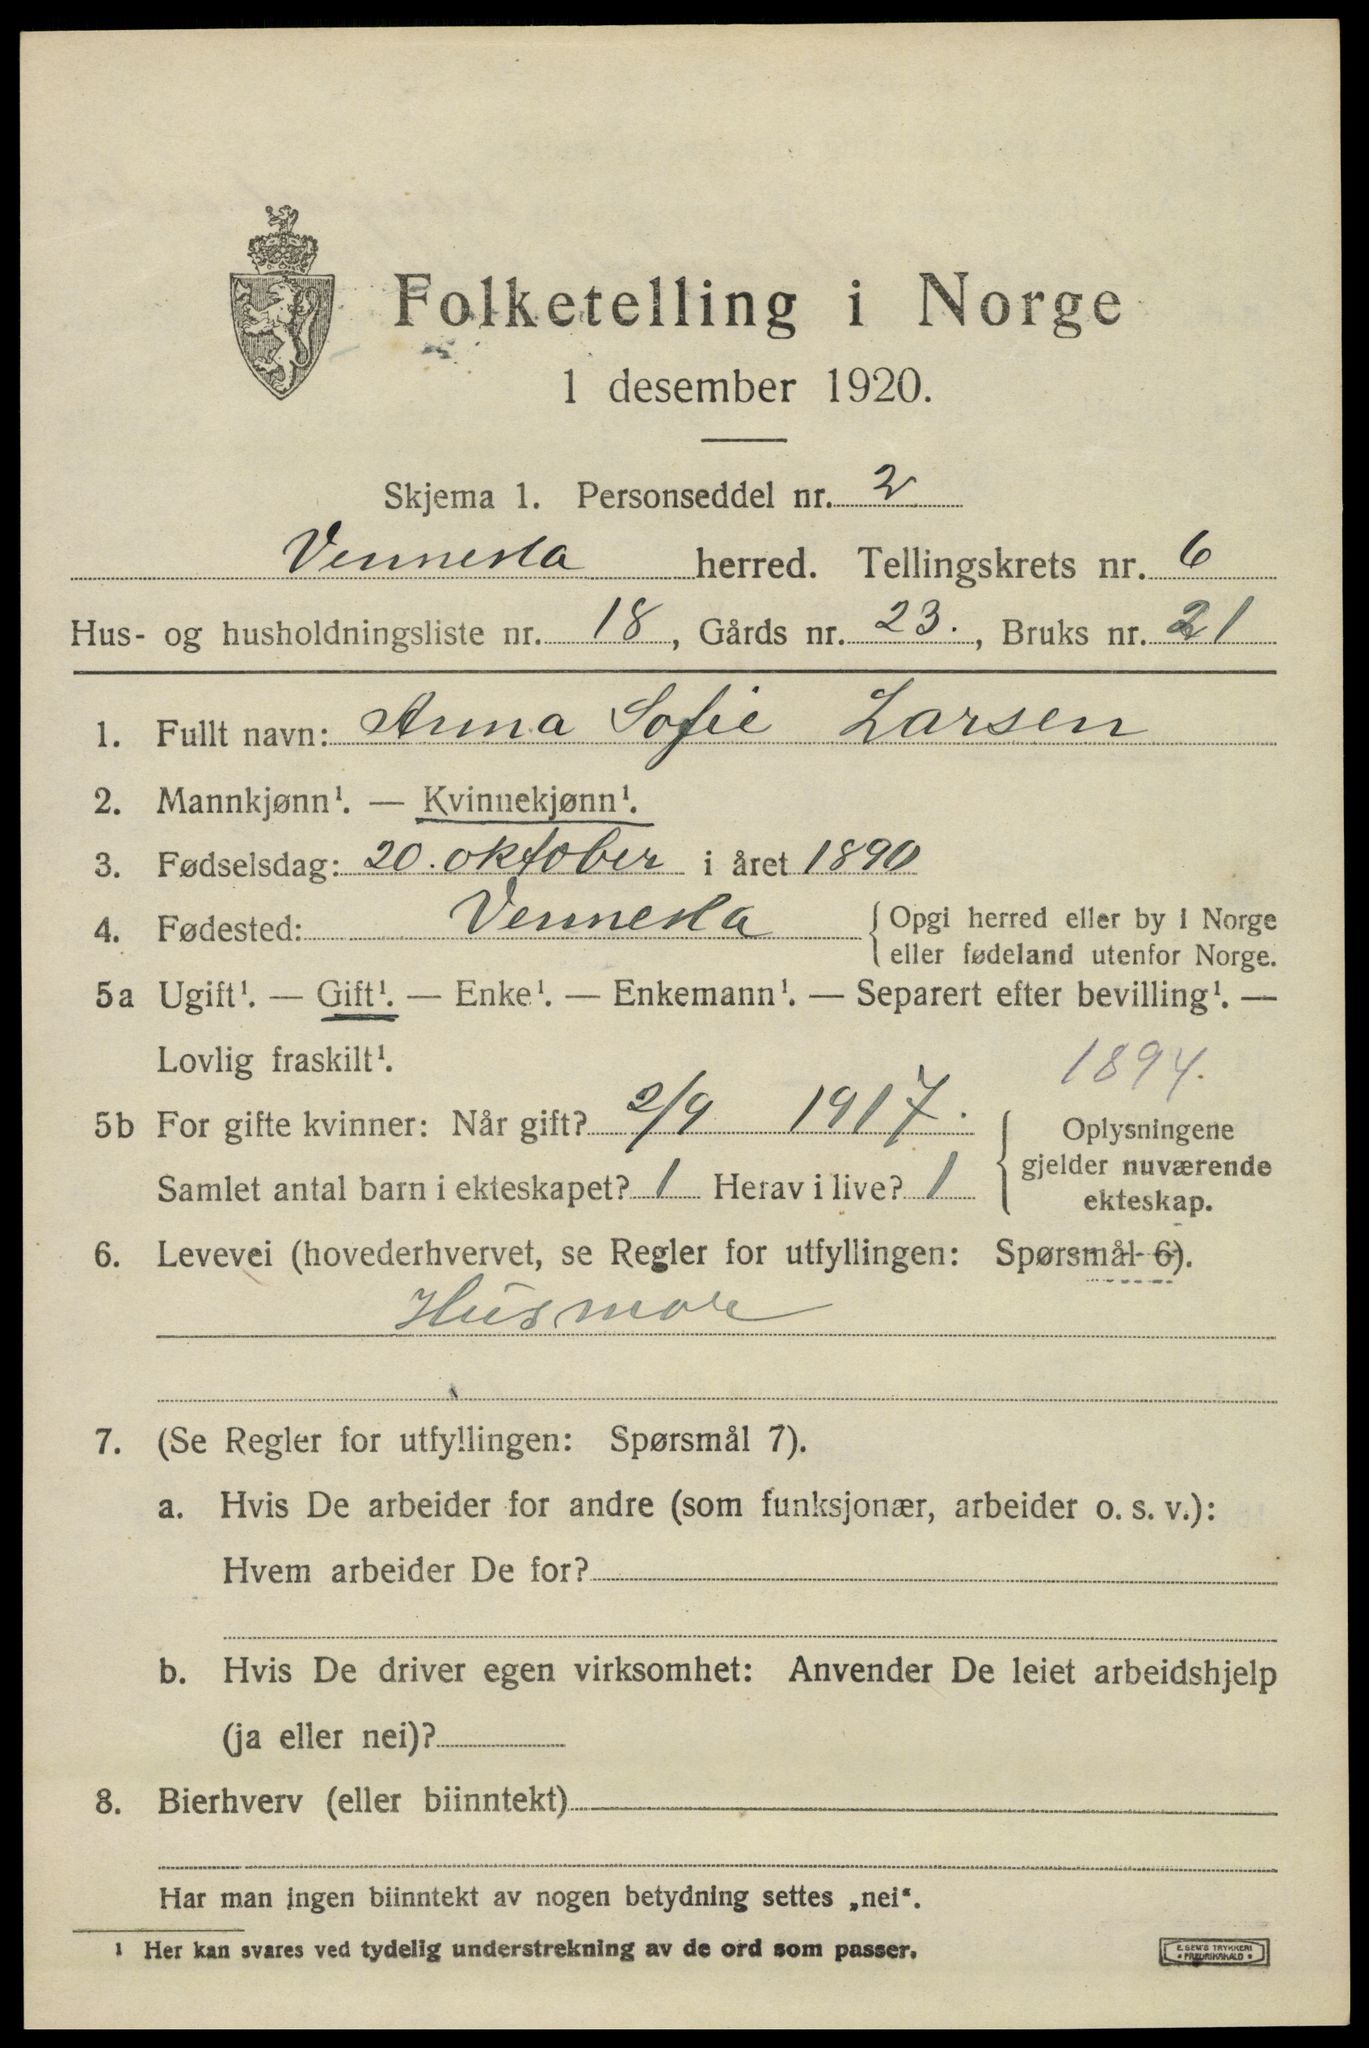 Folketelling i Norge
1 desember 1920.
Skjema 1. Personseddel nr. 2
Vennesla herred. Tellingskrets nr. 6
Hus- og husholdningsliste nr. 18, Gårds nr. 23., Bruks nr. 21
1. Fullt navn: Anna Sofie Larsen
2. Mannkjønn¹. — Kvinnekjønn¹.
3. Fødselsdag: 20. oktober i året 1890
4. Fødested: Vennesla { Opgi herred eller by i Norge
eller fødeland utenfor Norge.
5a Ugift¹. — Gift¹. — Enke¹. — Enkemann¹. — Separert efter bevilling¹. —
Lovlig fraskilt¹.
1894.
5b For gifte kvinner: Når gift? 2/9 1917.
Samlet antal barn i ekteskapet? 1 Herav i live? 1
Oplysningene
gjelder nuværende
ekteskap.
6. Levevei (hovederhvervet, se Regler for utfyllingen: Spørsmål 6).
Husmore
7. (Se Regler for utfyllingen: Spørsmål 7).
a. Hvis De arbeider for andre (som funksjonær, arbeider o. s. v.):
Hvem arbeider De for?
b. Hvis De driver egen virksomhet: Anvender De leiet arbeidshjelp
(ja eller nei)?
8. Bierhverv (eller biinntekt)
Har man ingen biinntekt av nogen betydning settes „nei“.
¹ Her kan svares ved tydelig understrekning av de ord som passer.
E. SEM'S TRYKKERI
* FREDRIKSHALD *